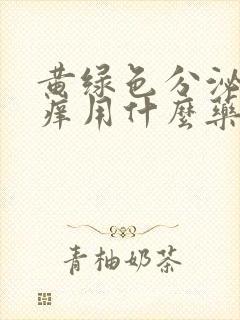 黄绿色分泌
痒用什麼藥
青柚奶茶